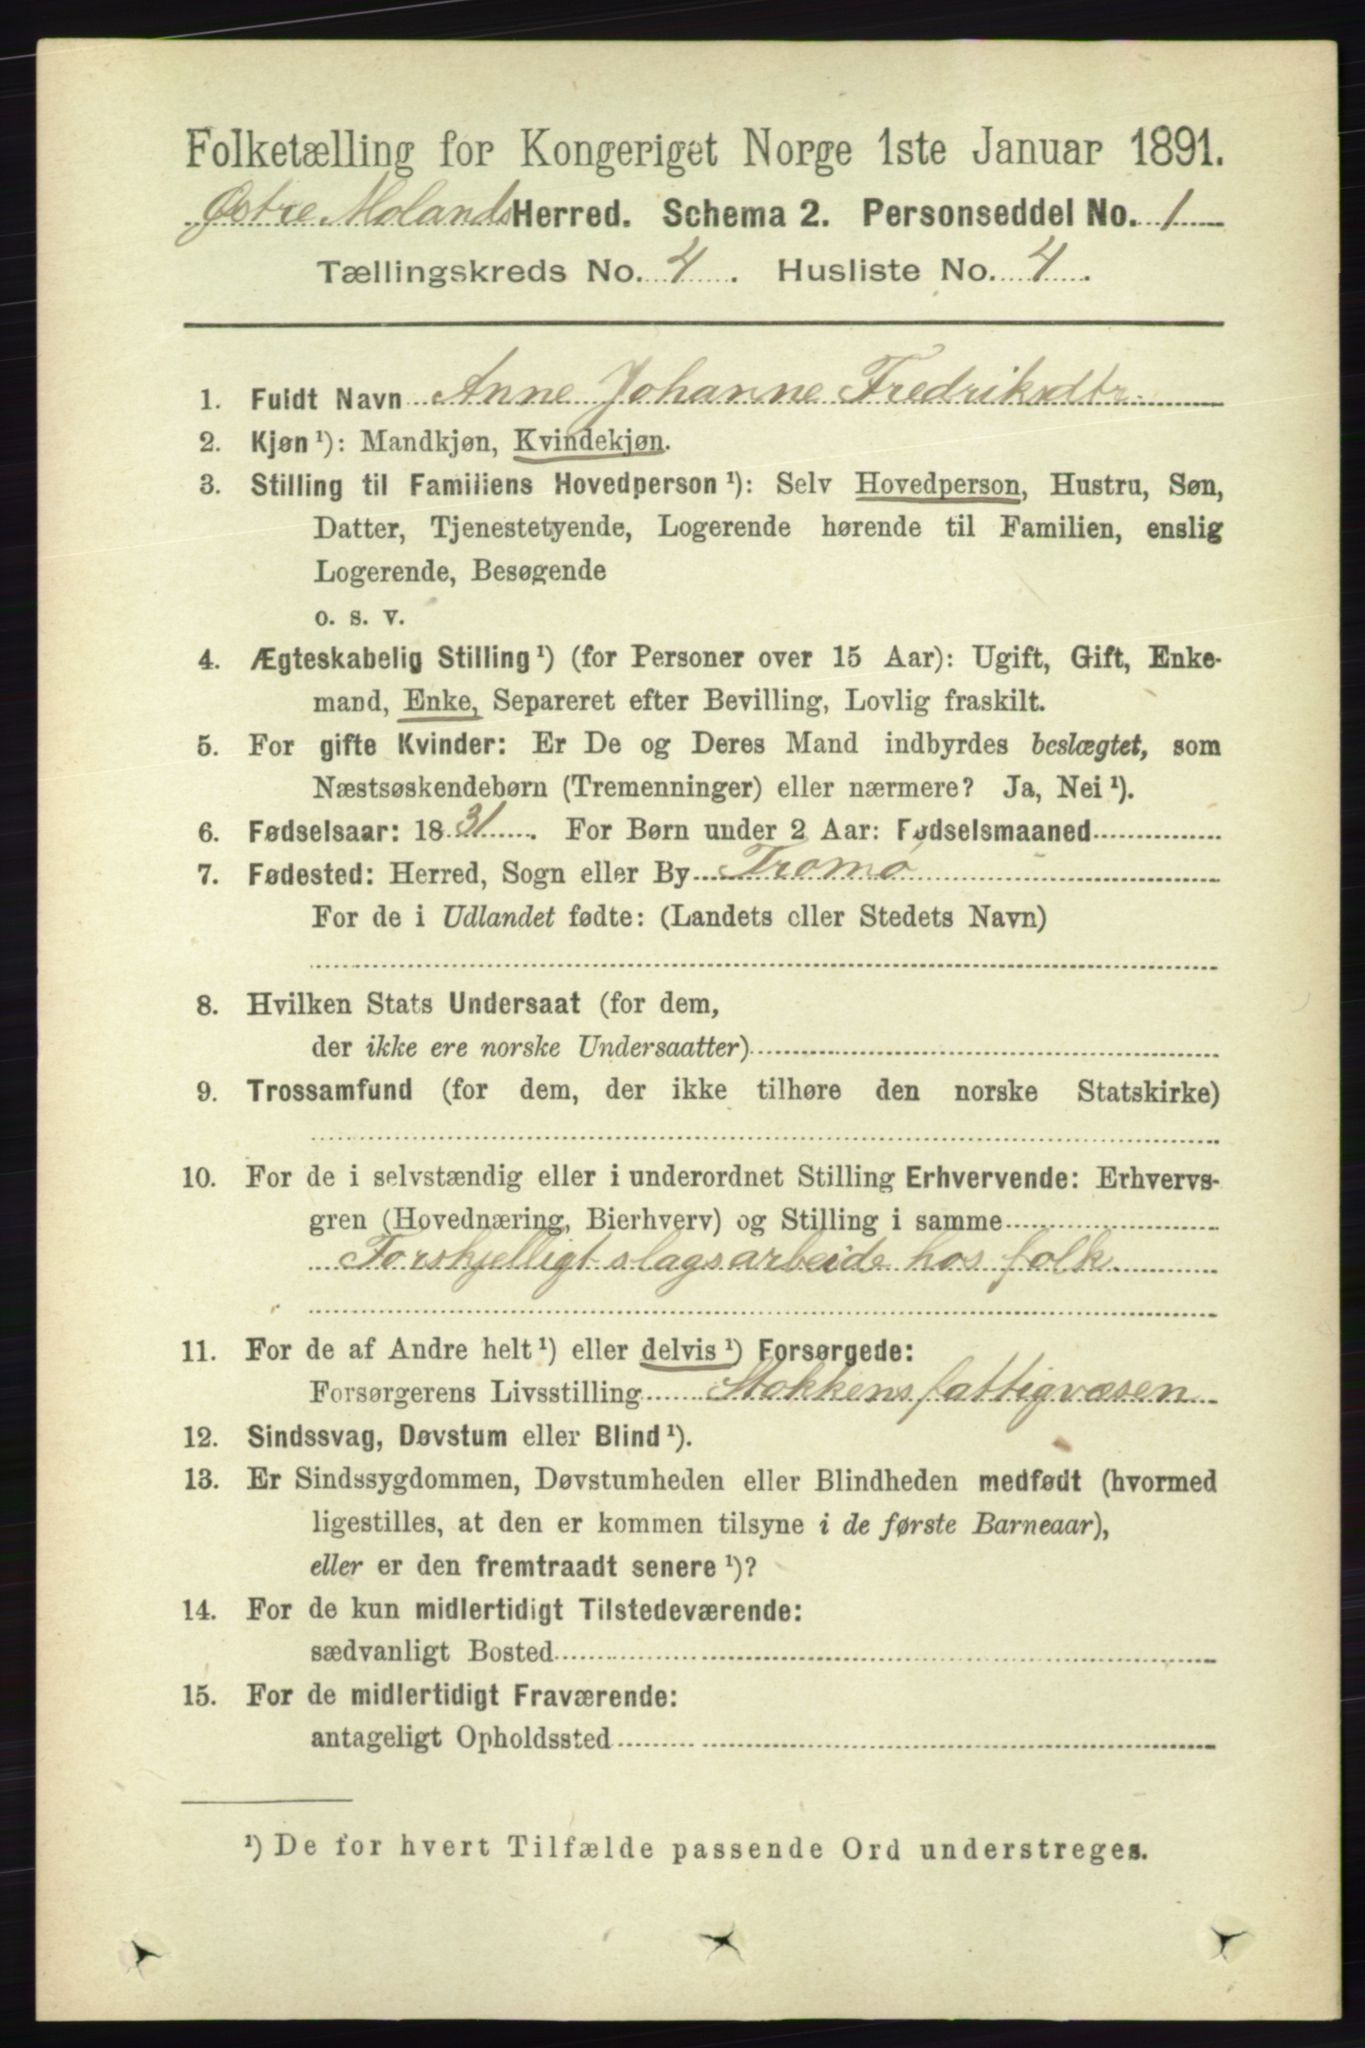 Folketælling for Kongeriget Norge 1ste Januar 1891.
Østre Molands Herred. Schema 2. Personseddel No. 1
Tællingskreds No. 4. Husliste No. 4.
1. Fuldt Navn Anne Johanne Fredriksdtr.
2. Kjøn ¹): Mandkjøn, Kvindekjøn.
3. Stilling til Familiens Hovedperson ¹): Selv Hovedperson, Hustru, Søn,
Datter, Tjenestetyende, Logerende hørende til Familien, enslig
Logerende, Besøgende
o. s. v.
4. Ægteskabelig Stilling ¹) (for Personer over 15 Aar): Ugift, Gift, Enke-
mand, Enke, Separeret efter Bevilling, Lovlig fraskilt.
5. For gifte Kvinder: Er De og Deres Mand indbyrdes beslægtet, som
Næstsøskendebørn (Tremenninger) eller nærmere? Ja, Nei ¹).
6. Fødselsaar: 1831. For Børn under 2 Aar: Fødselsmaaned
7. Fødested: Herred, Sogn eller By Tromø
For de i Udlandet fødte: (Landets eller Stedets Navn)
8. Hvilken Stats Undersaat (for dem,
der ikke ere norske Undersaatter)
9. Trossamfund (for dem, der ikke tilhøre den norske Statskirke)
10. For de i selvstændig eller i underordnet Stilling Erhvervende: Erhvervs-
gren (Hovednæring, Bierhverv) og Stilling i samme
Forskjelligt slags arbeide hos folk.
11. For de af Andre helt ¹) eller delvis ¹) Forsørgede:
Forsørgerens Livsstilling Stokkens fattigvæsen
12. Sindssvag, Døvstum eller Blind ¹).
13. Er Sindssygdommen, Døvstumheden eller Blindheden medfødt (hvormed
ligestilles, at den er kommen tilsyne i de første Barneaar),
eller er den fremtraadt senere ¹)?
14. For de kun midlertidigt Tilstedeværende:
sædvanligt Bosted
15. For de midlertidigt Fraværende:
antageligt Opholdssted
¹) De for hvert Tilfælde passende Ord understreges.